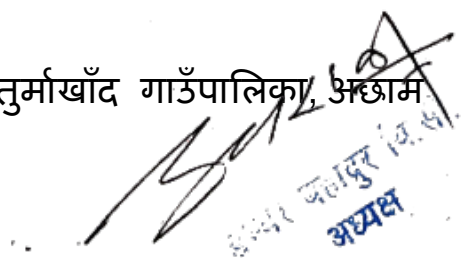 तुर्माखाँद गाउँपालिका, अछाम
बहादुर वि.सी.
अध्यक्ष